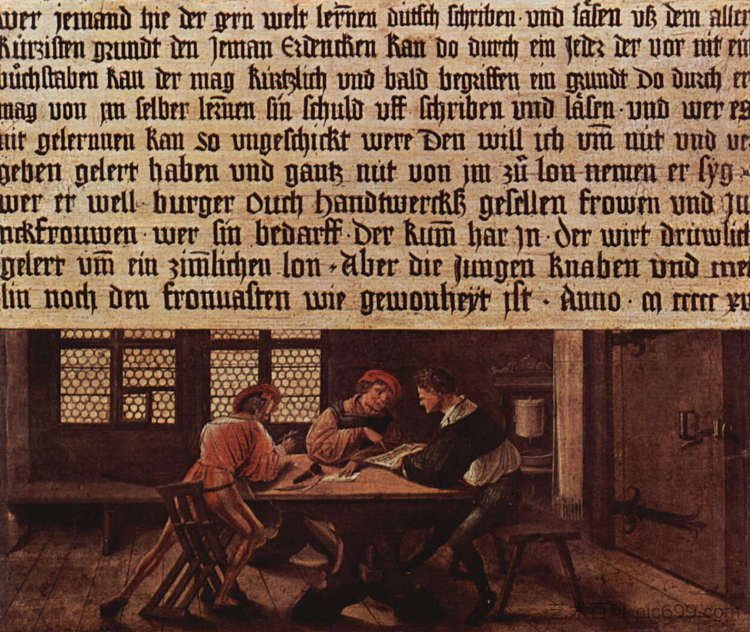 wer jemand hie der gern welt lernen dütsch schriben und läsen uß dem aller
kürzisten grundt den Jeman Erdencken kan do durch ein Jeder der vor nit ein
büchstaben kan der mag kürtzlich und bald begriffen ein grundt Do durch er
mag von im selber lernen sin schuld uff schriben und läsen und wer es
nit gelernnen kan so ungeschickt were Den will ich um nüt und ver
geben gelert haben und gantz nüt von im zü lon nemen er syg
wer er well burger Ouch handtwerckß gesellen frowen und Ju
nckfrouwen wer sin bedarff Der kum har Jn Der wirt drüwlich
gelert um ein zimlichen lon Aber die Jungen knaben und mei
lin noch den fronuasten wie gewonheyt ist Anno m ccccc xv